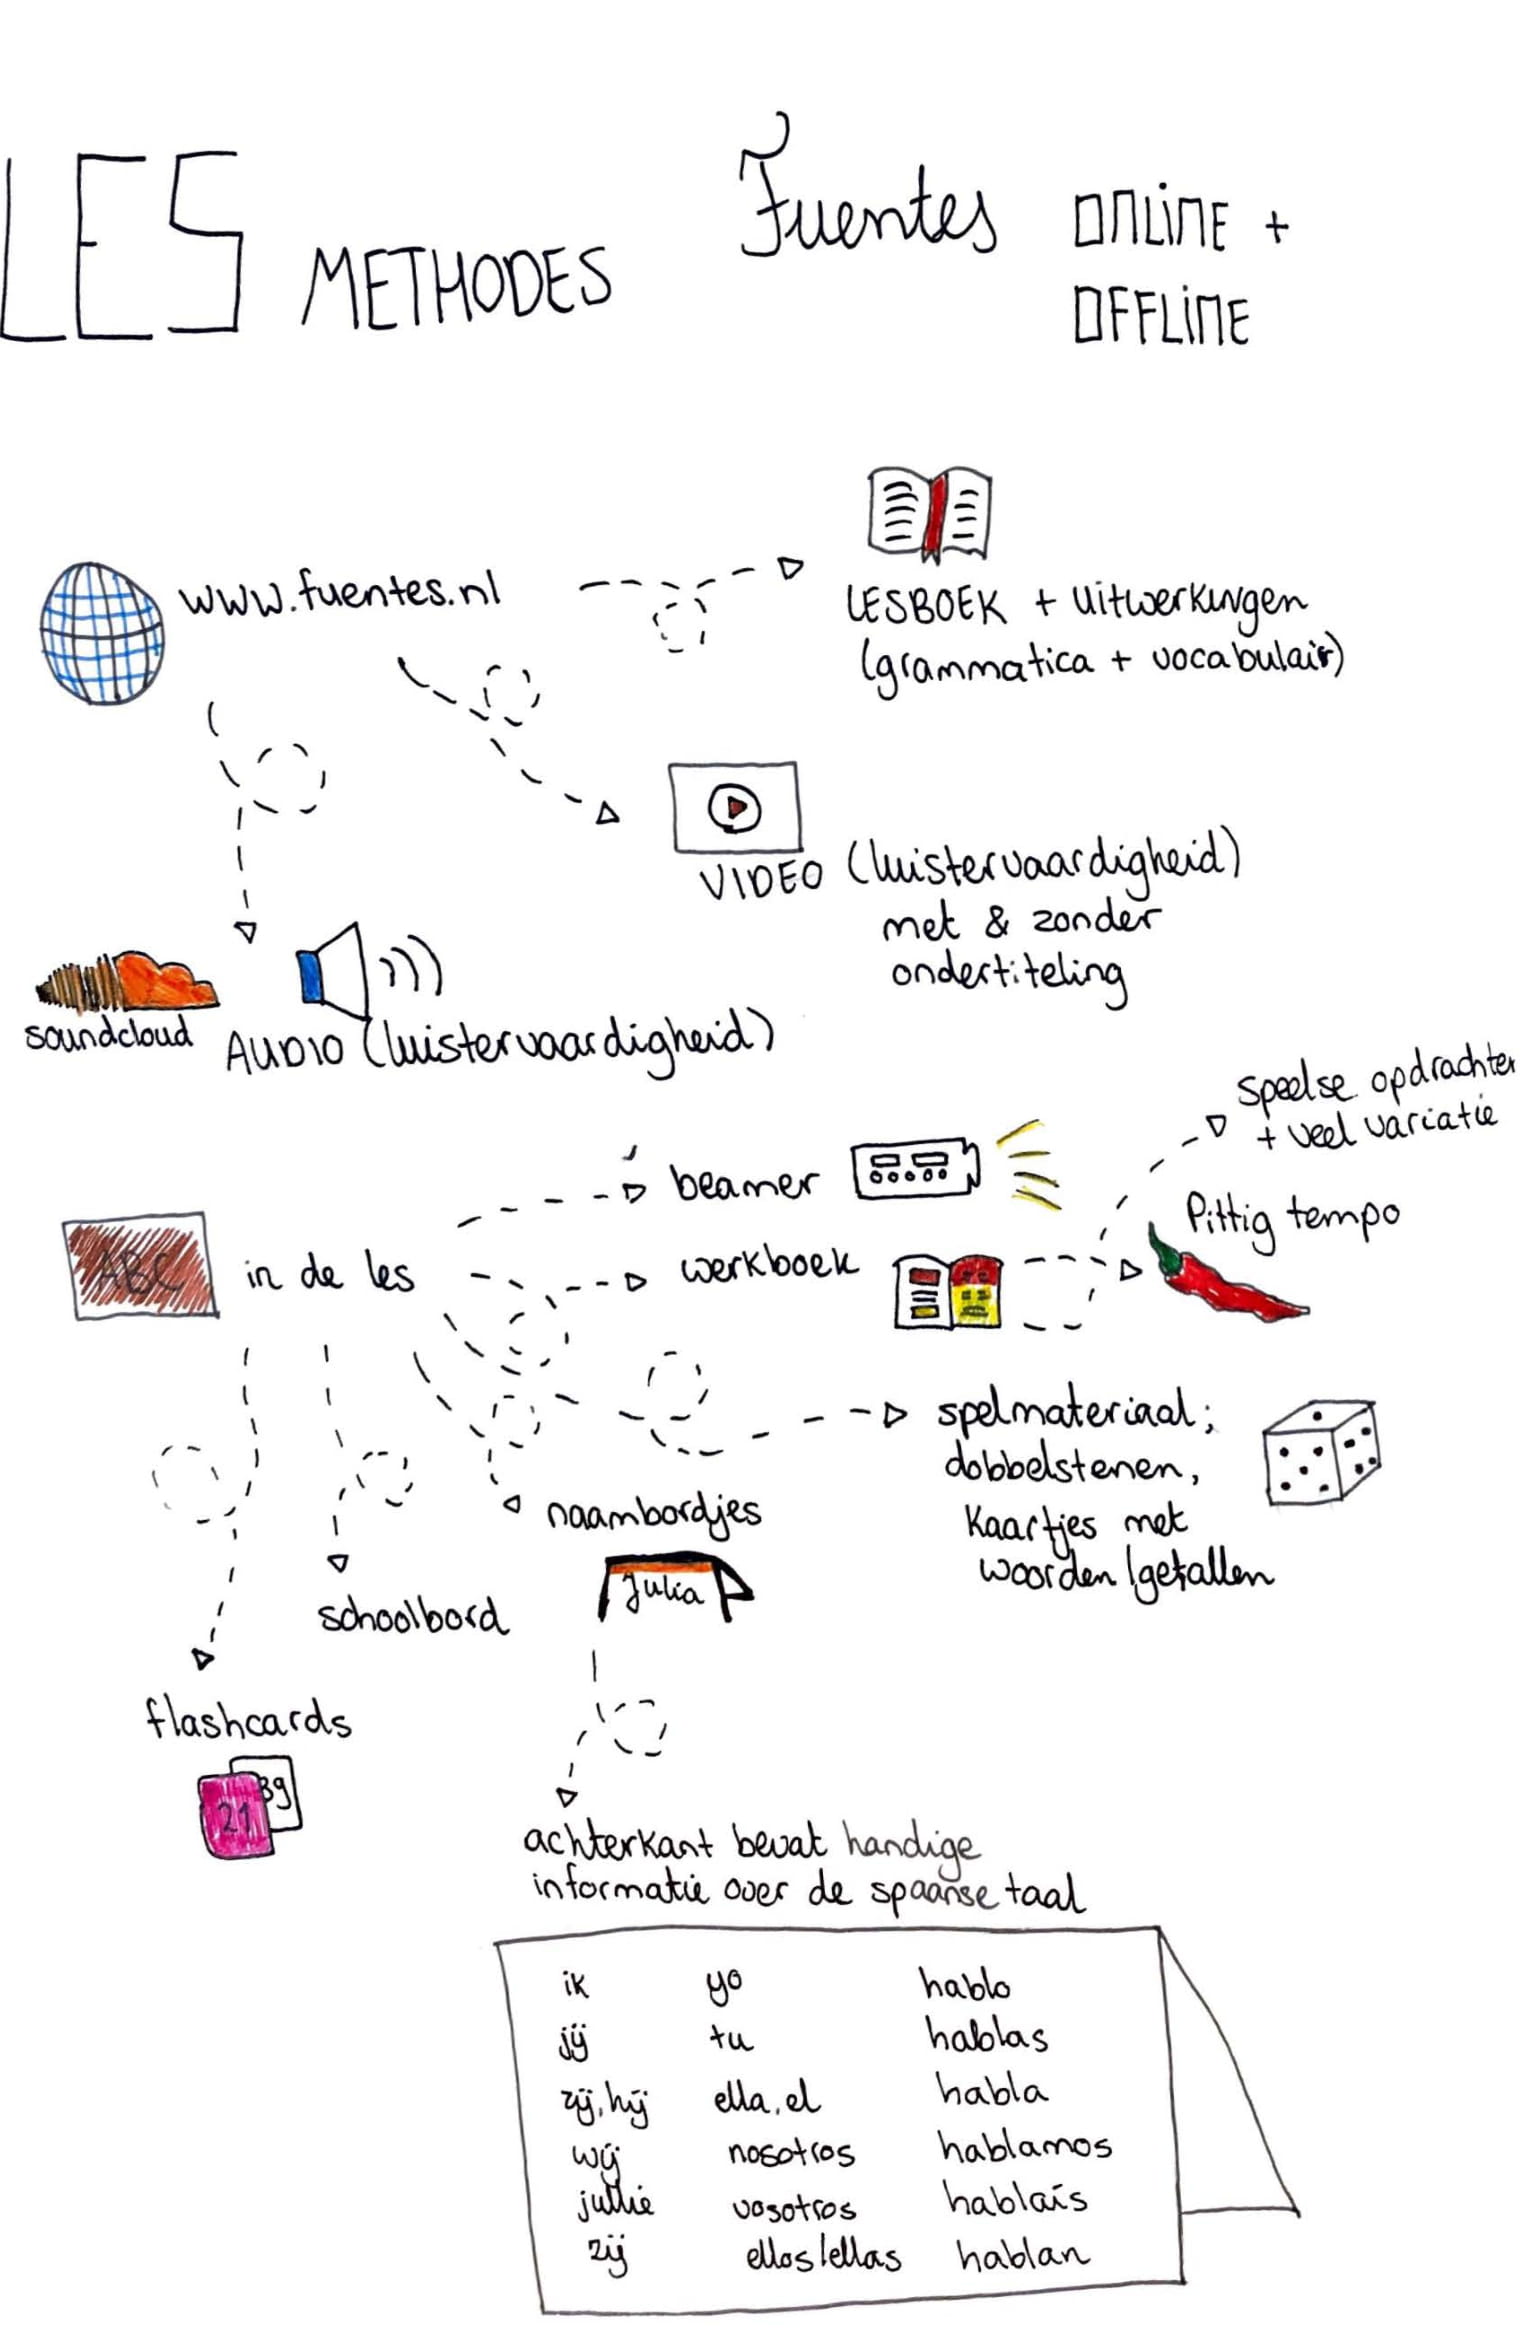 LES METHODES
Fuentes
ONLINE +
OFFLINE
www.fuentes.nl
LESBOEK + uitwerkingen
(grammatica + vocabulair)
VIDEO (luistervaardigheid)
met & zonder
ondertiteling
soundcloud
AUDIO (luistervaardigheid)
speelse opdrachten
+ veel variatie
beamer
Pittig tempo
ABC
in de les
werkboek
spelmateriaal;
dobbelstenen,
kaartjes met
woorden/getallen
naambordjes
Julia
schoolbord
flashcards
39
21
achterkant bevat handige
informatie over de spaanse taal
ik yo hablo
jij tu hablas
zij, hij ella, el habla
wij nosotros hablamos
jullie vosotros hablaís
zij ellos/ellas hablan